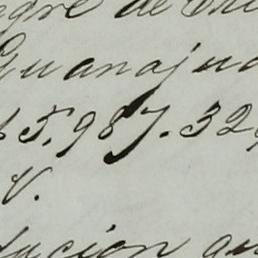 gre de
Guanajua
$5.987.32
V.
lacion qu